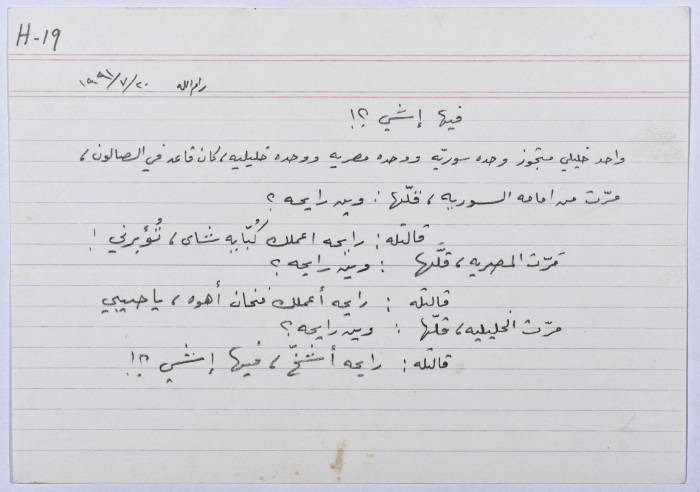 H-19
رام الله ٢٠/٧/١٩٩١
فيها إشي ؟!
واحد خليلي متجوز وحده سوريّه ووحده مصريه ووحده خليليه، كان قاعد في الصالون،
مرّت من امامه السوريه، قلّها : وين رايحه ؟
قالتله : رايحه اعملك كُبّايه شاي، تُؤبرني !
مرّت المصريه، قلّها : وين رايحه ؟
قالتله : رايحه أعملك فنجان أهوه، يا حبيبي
مرّت الخليليه، قلّها : وين رايحه ؟
قالتله : رايحه أشخّ، فيها إشي ؟!